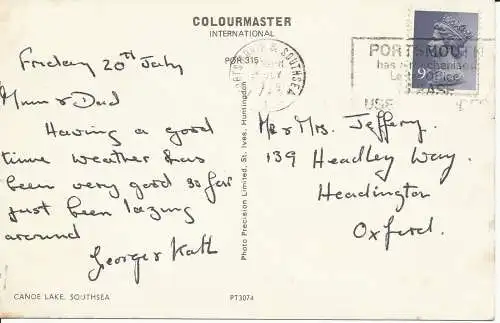 COLOURMASTER
INTERNATIONAL
POR 315
Friday 20th July
Mum & Dad
Having a good
time weather has
been very good so far
just been lazing
around
George & Kath
CANOE LAKE, SOUTHSEA
Photo Precision Limited, St. Ives, Huntingdon
PT3074
& SOUTHSEA
JLY
PORTSMOUTH
has
9
USE
Mr & Mrs. Jeffery.
139 Headley Way.
Headington
Oxford.